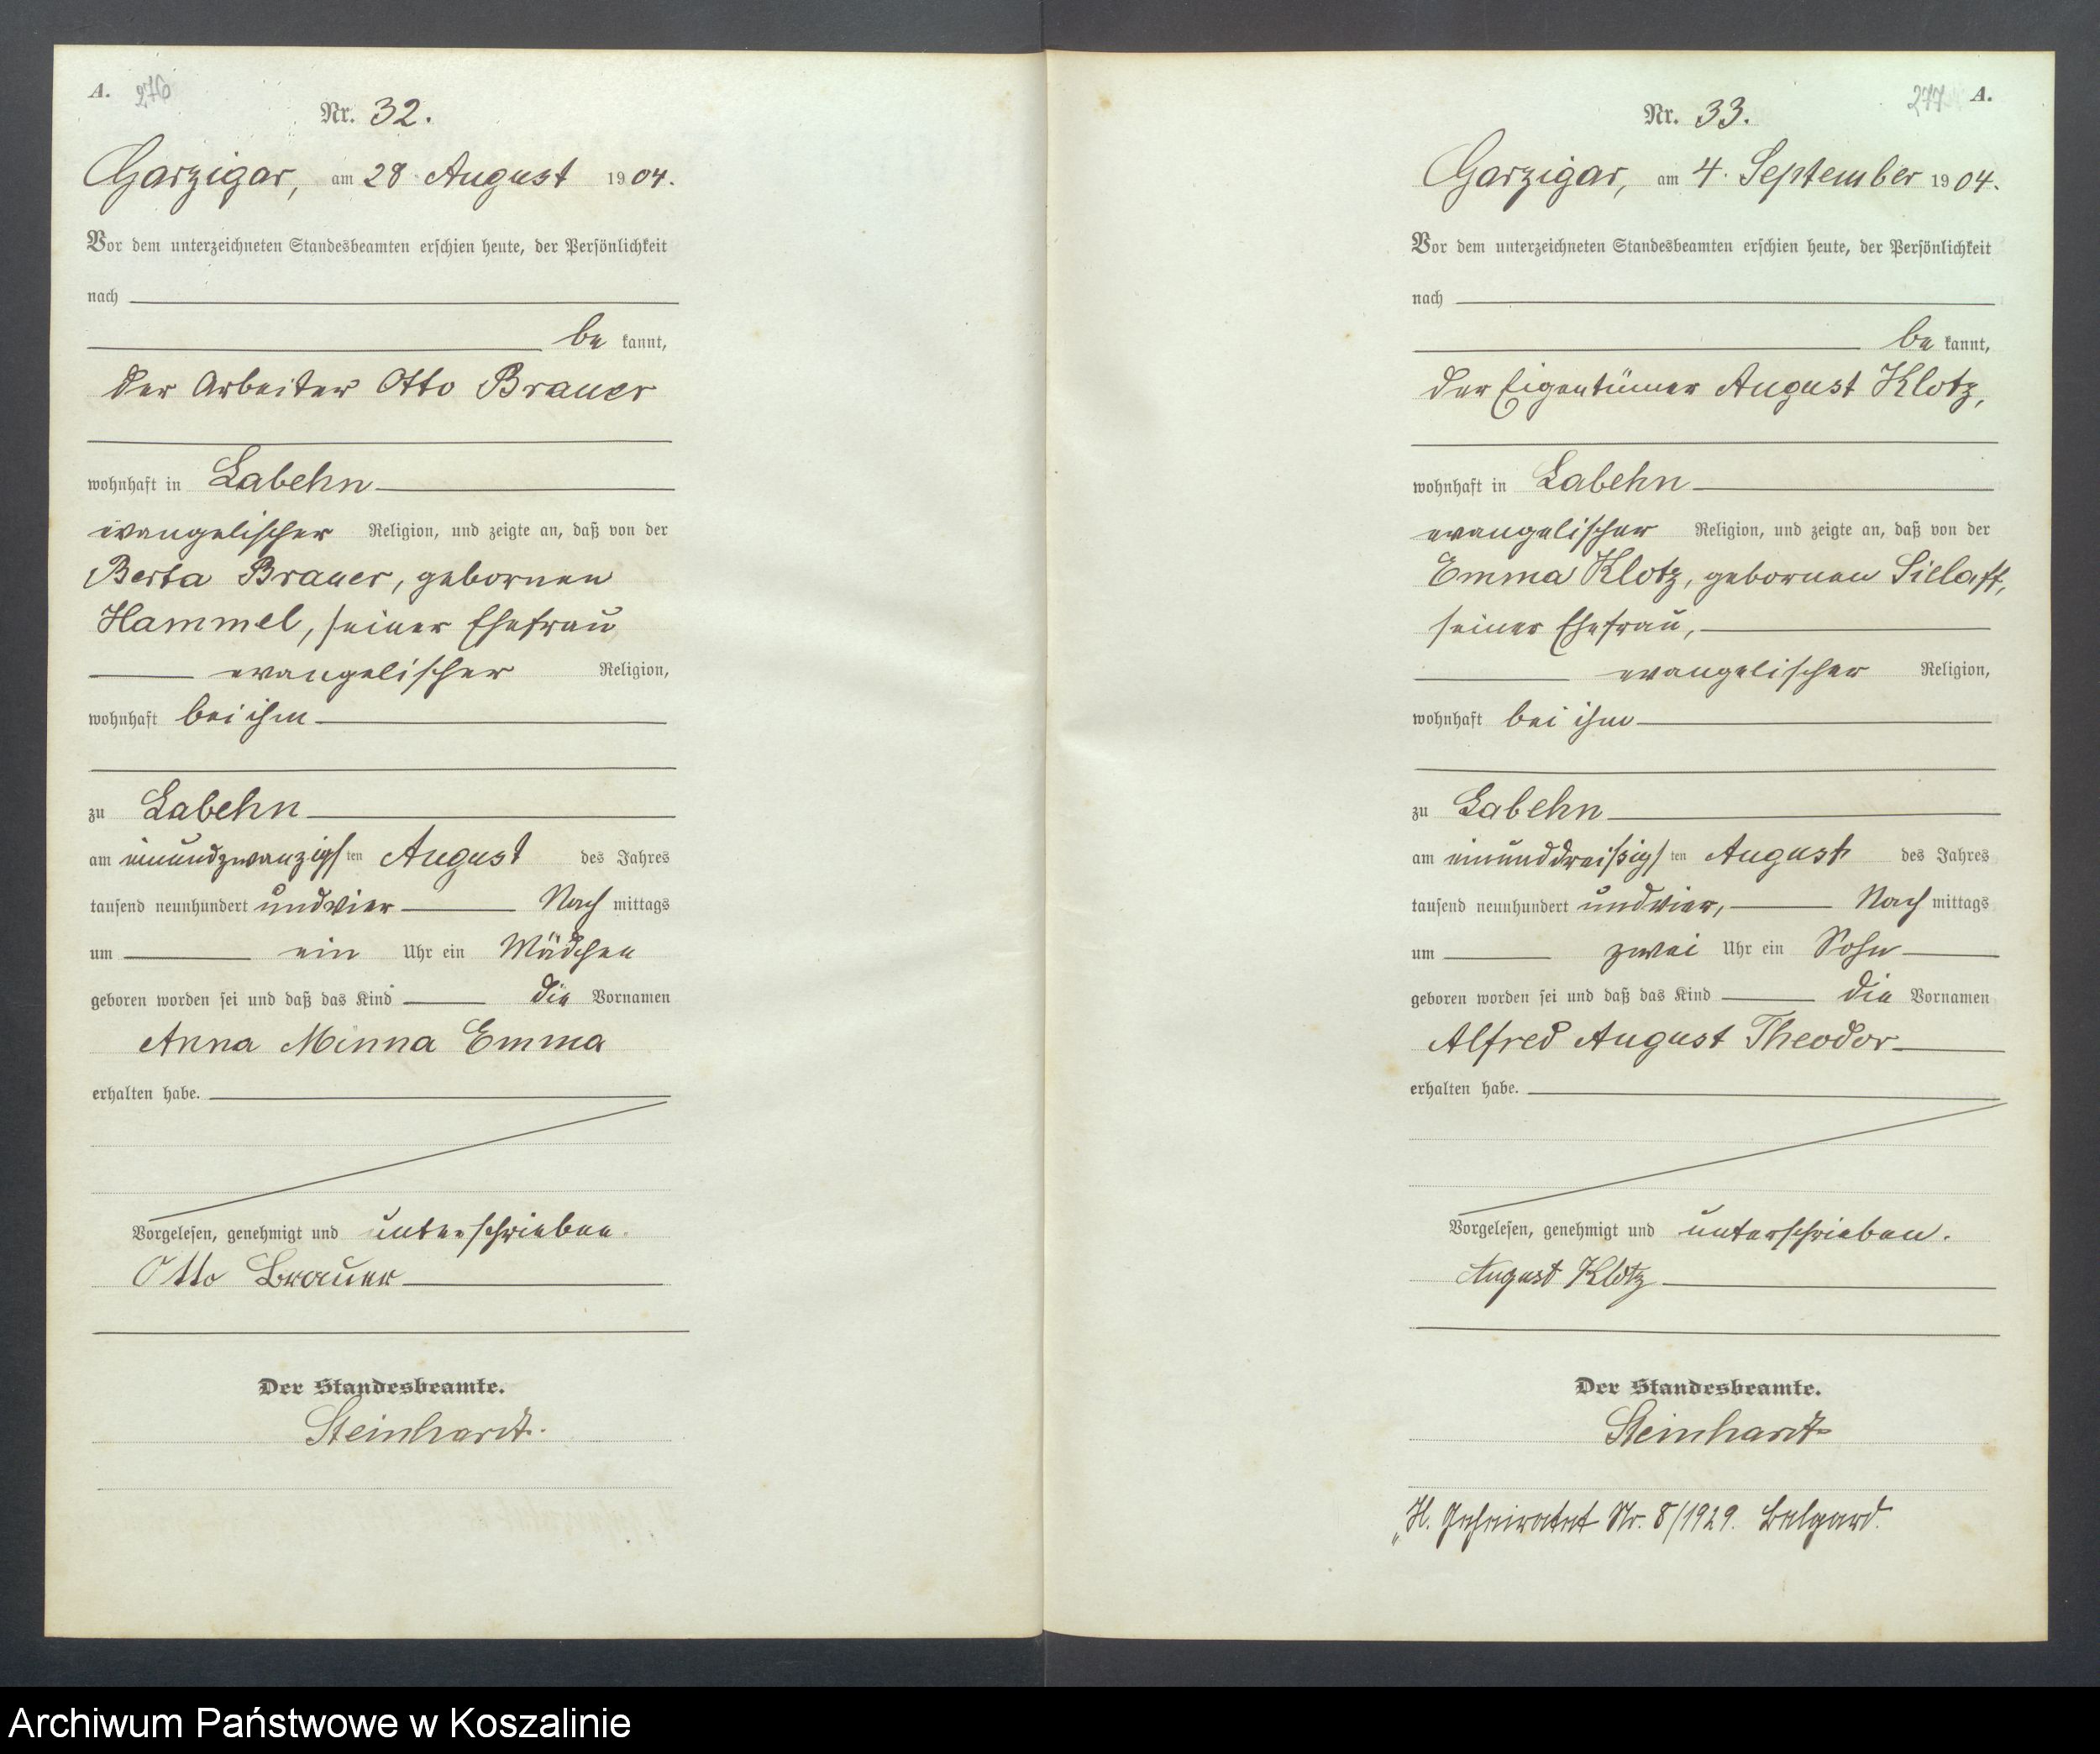 A. 276
Nr. 32.
Garzigar, am 28 August 1904.
Vor dem unterzeichneten Standesbeamten erschien heute, der Persönlichkeit
nach
be kannt,
der Arbeiter Otto Brauer
wohnhaft in Labehn
evangelischer Religion, und zeigte an, daß von der
Berta Brauer, gebornen
Hammel, seiner Ehefrau
evangelischer Religion,
wohnhaft bei ihm
zu Labehn
am einundzwanzigs ten August des Jahres
tausend neunhundert undvier Nach mittags
um ein Uhr ein Mädchen
geboren worden sei und daß das Kind die Vornamen
Anna Minna Emma
erhalten habe.
Vorgelesen, genehmigt und unterschrieben.
Otto Brauer
Der Standesbeamte.
Steinhardt.
277 A.
Nr. 33.
Garzigar, am 4. September 1904.
Vor dem unterzeichneten Standesbeamten erschien heute, der Persönlichkeit
nach
be kannt,
der Eigentümer August Klotz,
wohnhaft in Labehn
evangelischer Religion, und zeigte an, daß von der
Emma Klotz, gebornen Sielaff,
seiner Ehefrau,
evangelischer Religion,
wohnhaft bei ihm
zu Labehn
am einunddreißigs ten August des Jahres
tausend neunhundert undvier, Nach mittags
um zwei Uhr ein Sohn
geboren worden sei und daß das Kind die Vornamen
Alfred August Theodor
erhalten habe.
Vorgelesen, genehmigt und unterschrieben.
August Klotz
Der Standesbeamte.
Steinhardt
H. Geheiratet Nr. 8/1929. Belgard.
Archiwum Państwowe w Koszalinie